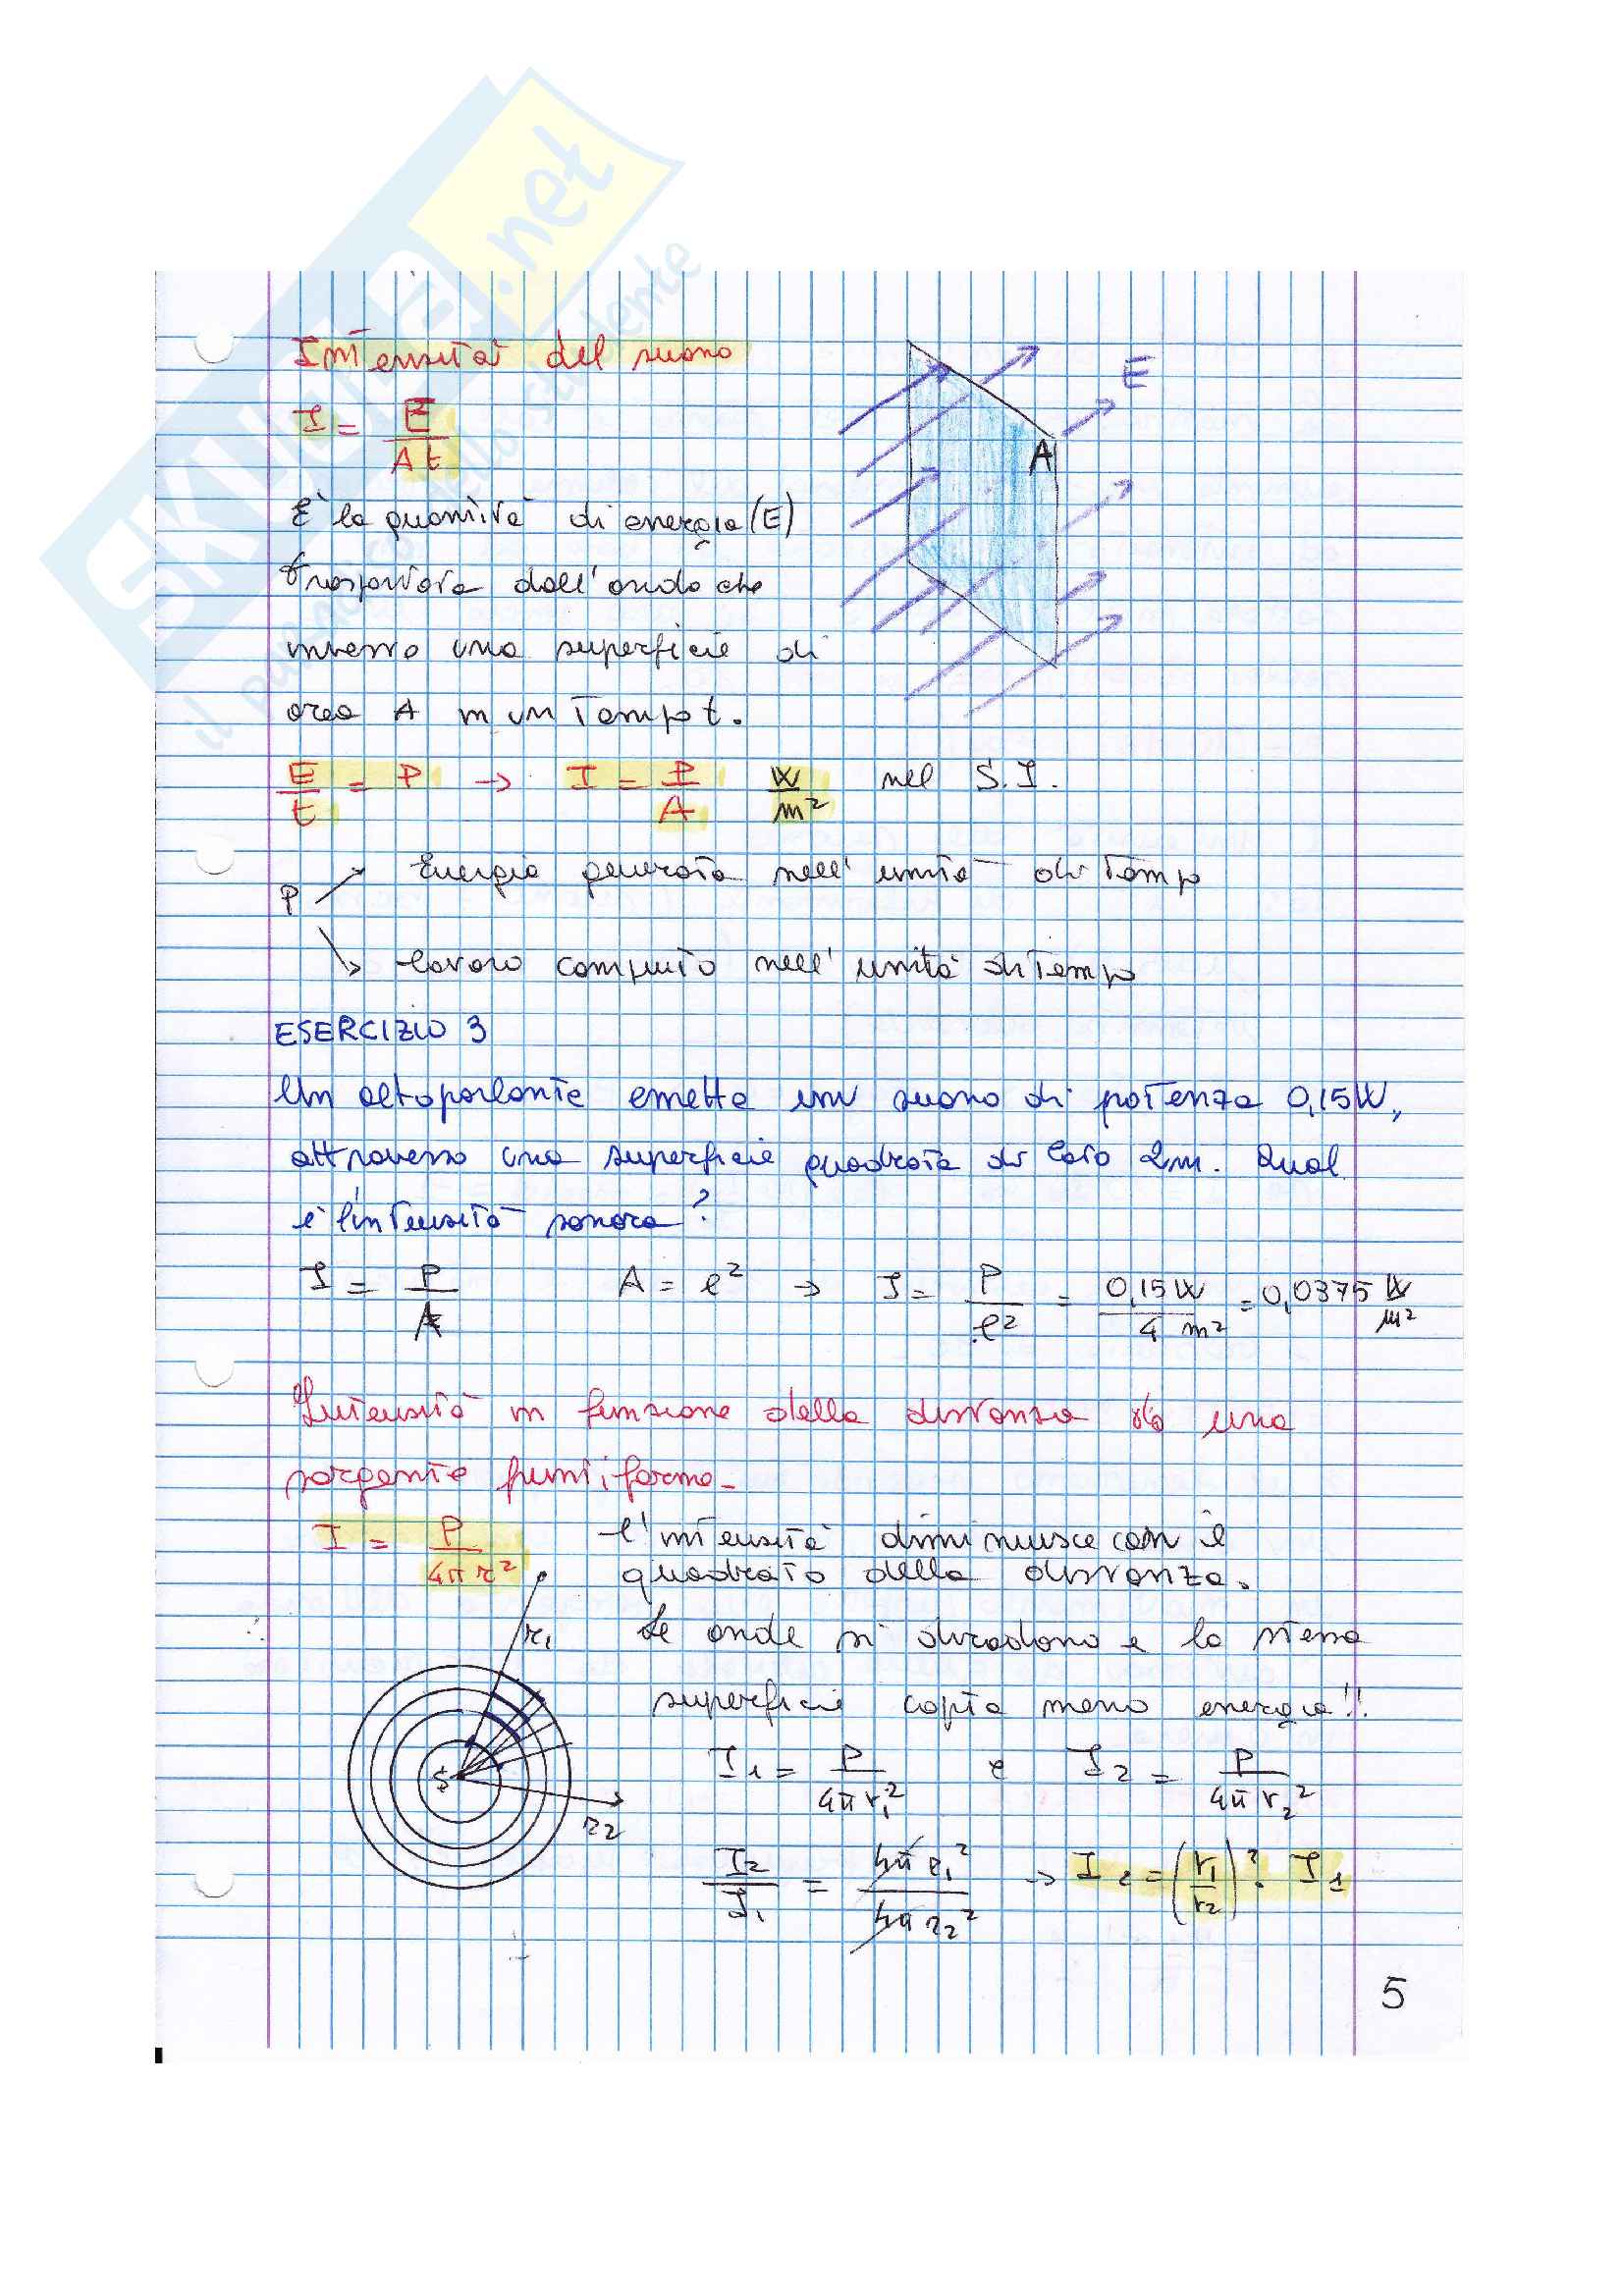 SKUOLA.net
il paradiso dello studente
Intensità del suono
I = E / A t
E
A
È la quantità di energia (E)
trasportata dall'onda che
attraversa una superficie di
area A in un tempo t.
E / t = P → I = P / A W / m² nel S.I.
P
Energia generata nell'unità di tempo
lavoro compiuto nell'unità di tempo
ESERCIZIO 3
Un altoparlante emette un suono di potenza 0,15 W,
attraverso una superficie quadrata di lato 2m. Qual
è l'intensità sonora?
I = P / A A = l² → I = P / l² = 0,15 W / 4 m² = 0,0375 W / m²
Intensità in funzione della distanza da una
sorgente puntiforme.
I = P / 4π r² l'intensità diminuisce con il
quadrato della distanza.
r₁ Le onde si diradano e la stessa
superficie capta meno energia!!
S
r₂
I₁ = P / 4π r₁² e I₂ = P / 4π r₂²
I₂ / I₁ = 4π r₁² / 4π r₂² → I₂ = (r₁ / r₂)² · I₁
5